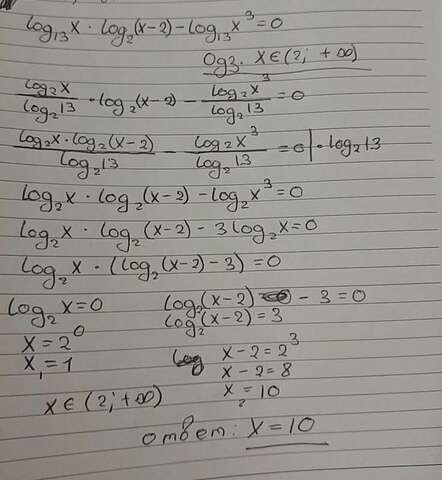 log₁₃x · log₂(x-2) - log₁₃x³ = 0
ОДЗ. x∈(2; +∞)
log₂x/log₂13 · log₂(x-2) - log₂x³/log₂13 = 0
log₂x · log₂(x-2)/log₂13 - log₂x³/log₂13 = 0 | · log₂13
log₂x · log₂(x-2) - log₂x³ = 0
log₂x · log₂(x-2) - 3log₂x = 0
log₂x · (log₂(x-2) - 3) = 0
log₂x = 0
x = 2⁰
x₁ = 1
log₂(x-2) - 3 = 0
log₂(x-2) = 3
x - 2 = 2³
x - 2 = 8
x₂ = 10
x∈(2; +∞)
ответ: x = 10